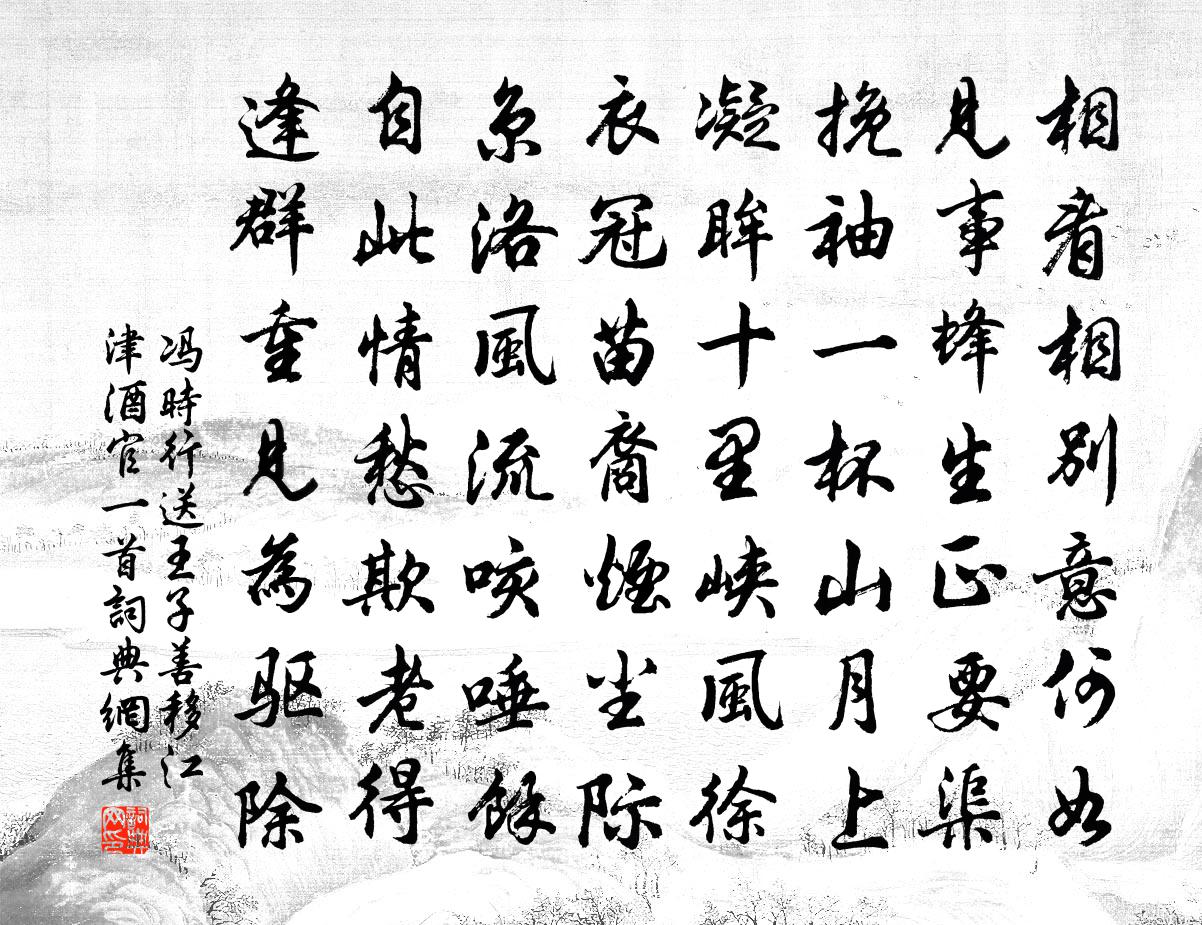 相看相别意何如
見事蜂生正要渠
挽袖一杯山月上
凝眸十里峡風徐
衣冠苗裔煙尘际
京洛風流咳唾餘
自此情愁欺老得
逢群重見為驱除
冯時行送王子善移江
津酒官一首詞典網集